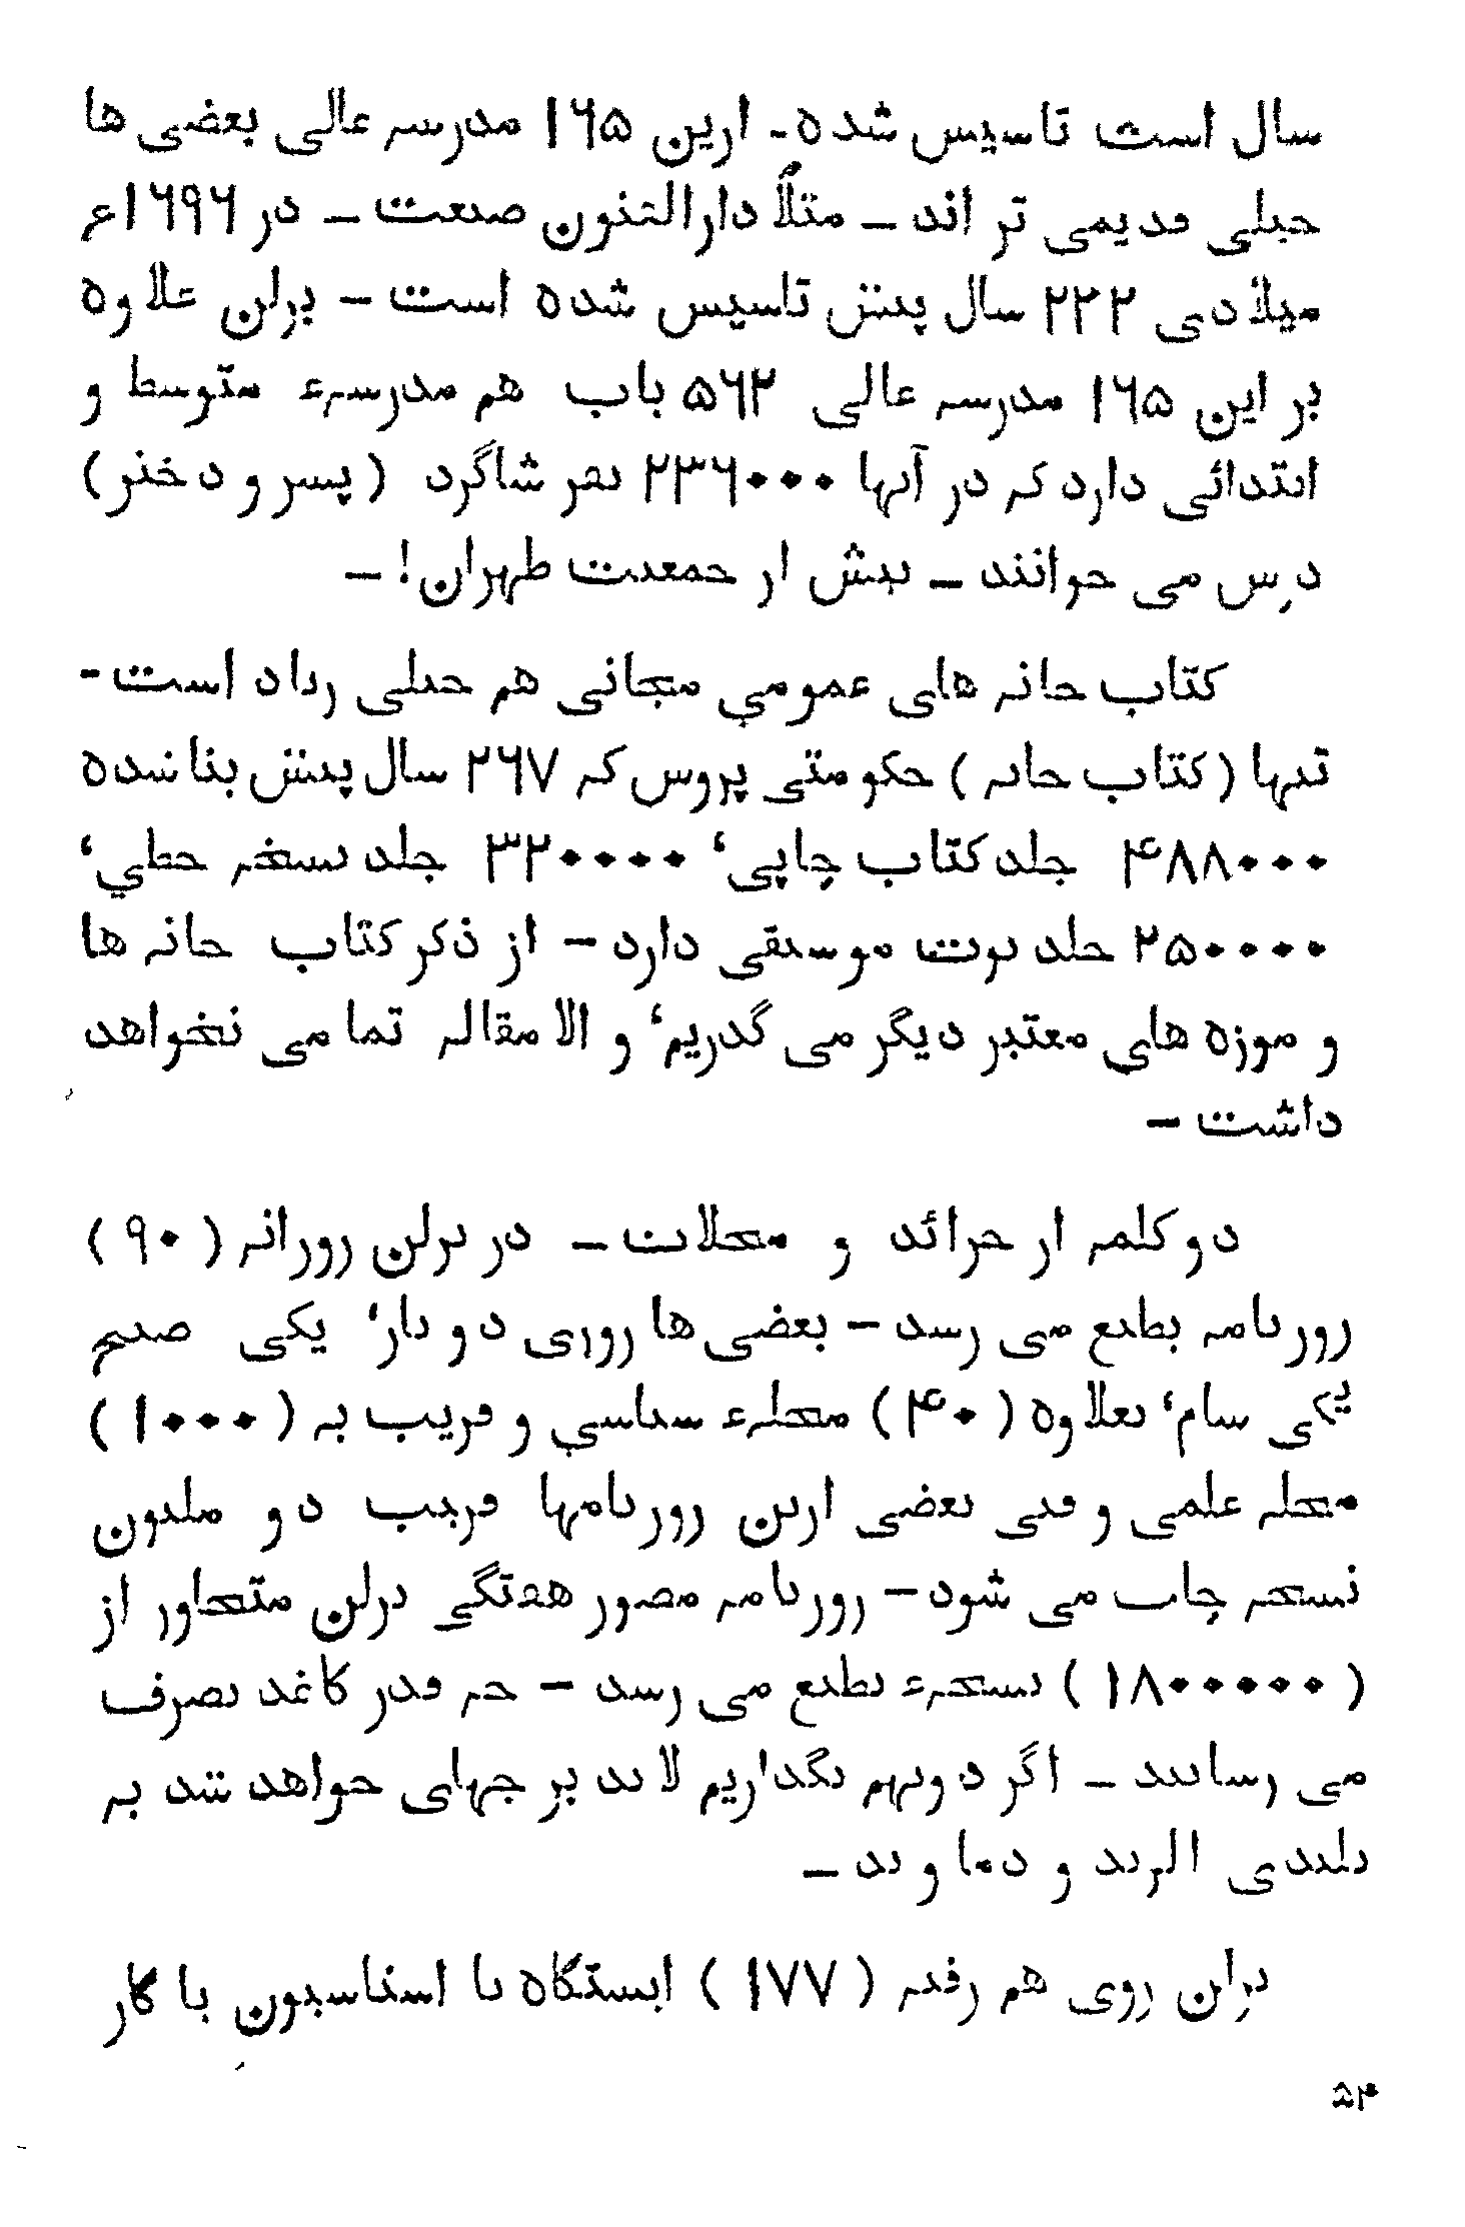 سال است تاسیس شده - ازین ۱۶۵ مدرسہ عالی بعضی ها
خیلی قدیمی تر اند - مثلاً دارالفنون صنعت - در ۱۶۹۶ع
میلادی ۲۲۲ سال پیش تاسیس شده است - برلن علاوه
بر این ۱۶۵ مدرسہ عالی ۵۶۲ باب هم مدرسہء متوسط و
ابتدائی دارد کہ در آنها ۲۳۶۰۰۰ نفر شاگرد (پسر و دختر)
درس می خوانند - بیش از جمعیت طهران! -
کتاب خانہ های عمومی مجانی هم خیلی زیاد است -
تنها (کتاب خانہ) حکومتی پروس کہ ۲۶۷ سال پیش بنا شده
۴۸۸۰۰۰ جلد کتاب چاپی، ۳۲۰۰۰۰ جلد نسخہ خطی،
۲۵۰۰۰۰ جلد نوت موسیقی دارد - از ذکر کتاب خانہ ها
و موزه های معتبر دیگر می گذریم، و الا مقالہ تمامی نخواهد
داشت -
دو کلمہ از جرائد و مجلات - در برلن روزانہ (۹۰)
روزنامہ بطبع می رسد - بعضی ها روزی دو بار، یکی صبح
یکی شام، بعلاوه (۴۰) مجلہء سیاسی و قریب بہ (۱۰۰۰)
مجلہ علمی و فنی بعضی ازین روزنامها قریب دو ملیون
نسخہ چاپ می شود - روزنامہ مصور هفتگی برلن متجاوز از
(۱۸۰۰۰۰۰) نسخہء بطبع می رسد - چہ قدر کاغذ بصرف
می رسانند - اگر رویهم بگذاریم لابد پر جهای خواهد شد بہ
بلندی البرز و دماوند -
برلن روی هم رفتہ (۱۷۷) ایستگاه یا استاسیون با کار
۵۴